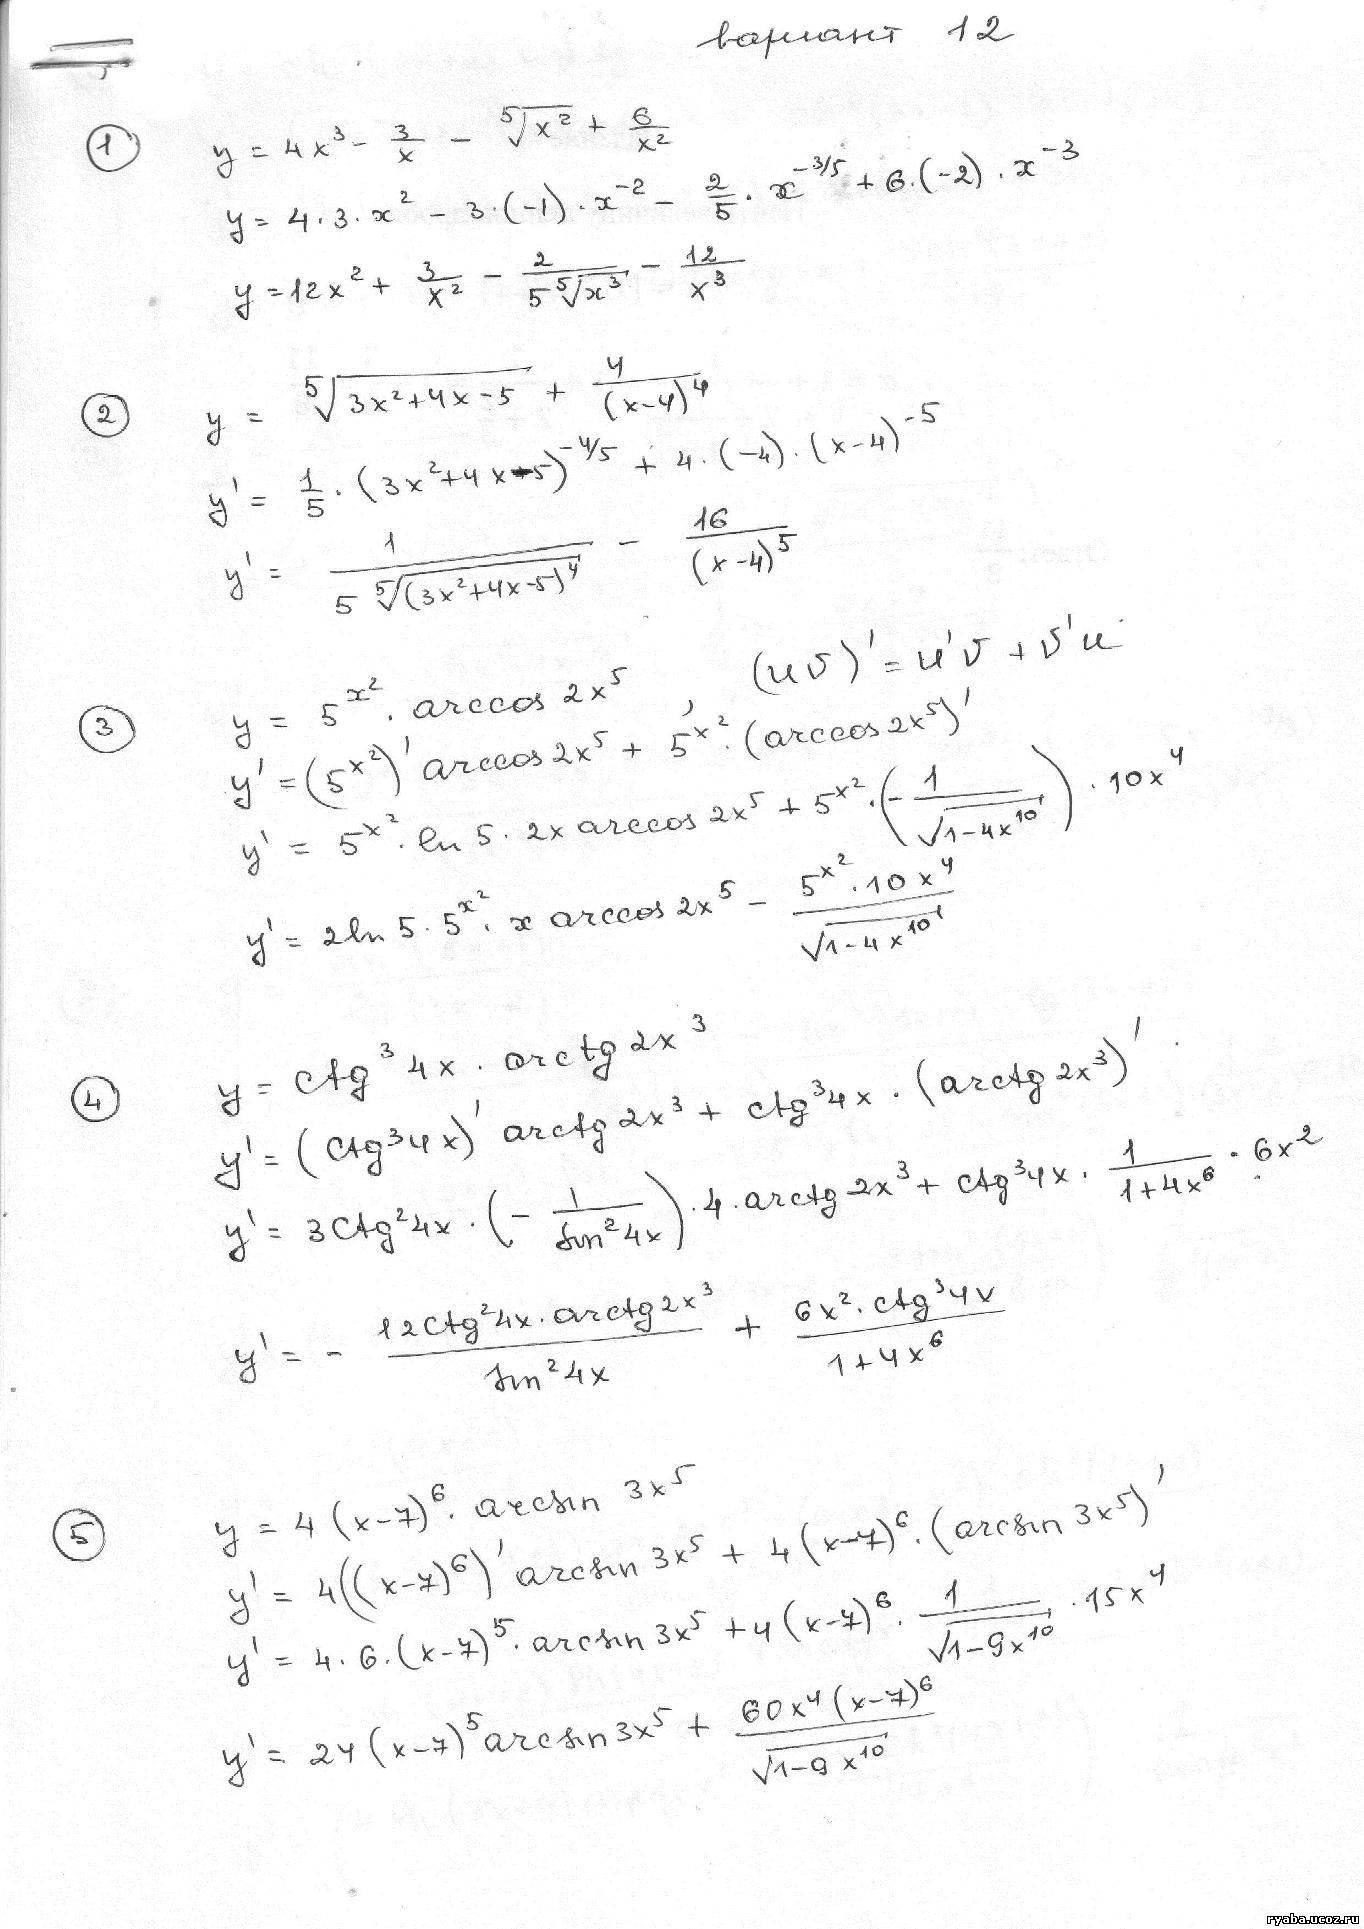 вариант 12
① y = 4x³ - 3/x - ⁵√x² + 6/x²
y = 4·3·x² - 3·(-1)·x⁻² - 2/5·x^(-3/5) + 6·(-2)·x⁻³
y = 12x² + 3/x² - 2/(5 ⁵√x³) - 12/x³
② y = ⁵√(3x²+4x-5) + 4/(x-4)⁴
y' = 1/5·(3x²+4x-5)^(-4/5) + 4·(-4)·(x-4)⁻⁵
y' = 1/(5 ⁵√(3x²+4x-5)⁴) - 16/(x-4)⁵
③ y = 5^(x²)·arccos 2x⁵, (uv)' = u'v + v'u
y' = (5^(x²))' arccos 2x⁵ + 5^(x²)·(arccos 2x⁵)'
y' = 5^(x²)·ln 5·2x arccos 2x⁵ + 5^(x²)·(-1/√(1-4x¹⁰))·10x⁴
y' = 2ln 5·5^(x²)·x arccos 2x⁵ - (5^(x²)·10x⁴)/√(1-4x¹⁰)
④ y = ctg³4x·arctg 2x³
y' = (ctg³4x)' arctg 2x³ + ctg³4x·(arctg 2x³)'
y' = 3ctg²4x·(-1/sin²4x)·4·arctg 2x³ + ctg³4x·1/(1+4x⁶)·6x²
y' = - (12ctg²4x·arctg 2x³)/(sin²4x) + (6x²·ctg³4x)/(1+4x⁶)
⑤ y = 4(x-7)⁶·arcsin 3x⁵
y' = 4((x-7)⁶)' arcsin 3x⁵ + 4(x-7)⁶·(arcsin 3x⁵)'
y' = 4·6·(x-7)⁵·arcsin 3x⁵ + 4(x-7)⁶·1/√(1-9x¹⁰)·15x⁴
y' = 24(x-7)⁵ arcsin 3x⁵ + (60x⁴(x-7)⁶)/√(1-9x¹⁰)
ryaba.ucoz.ru